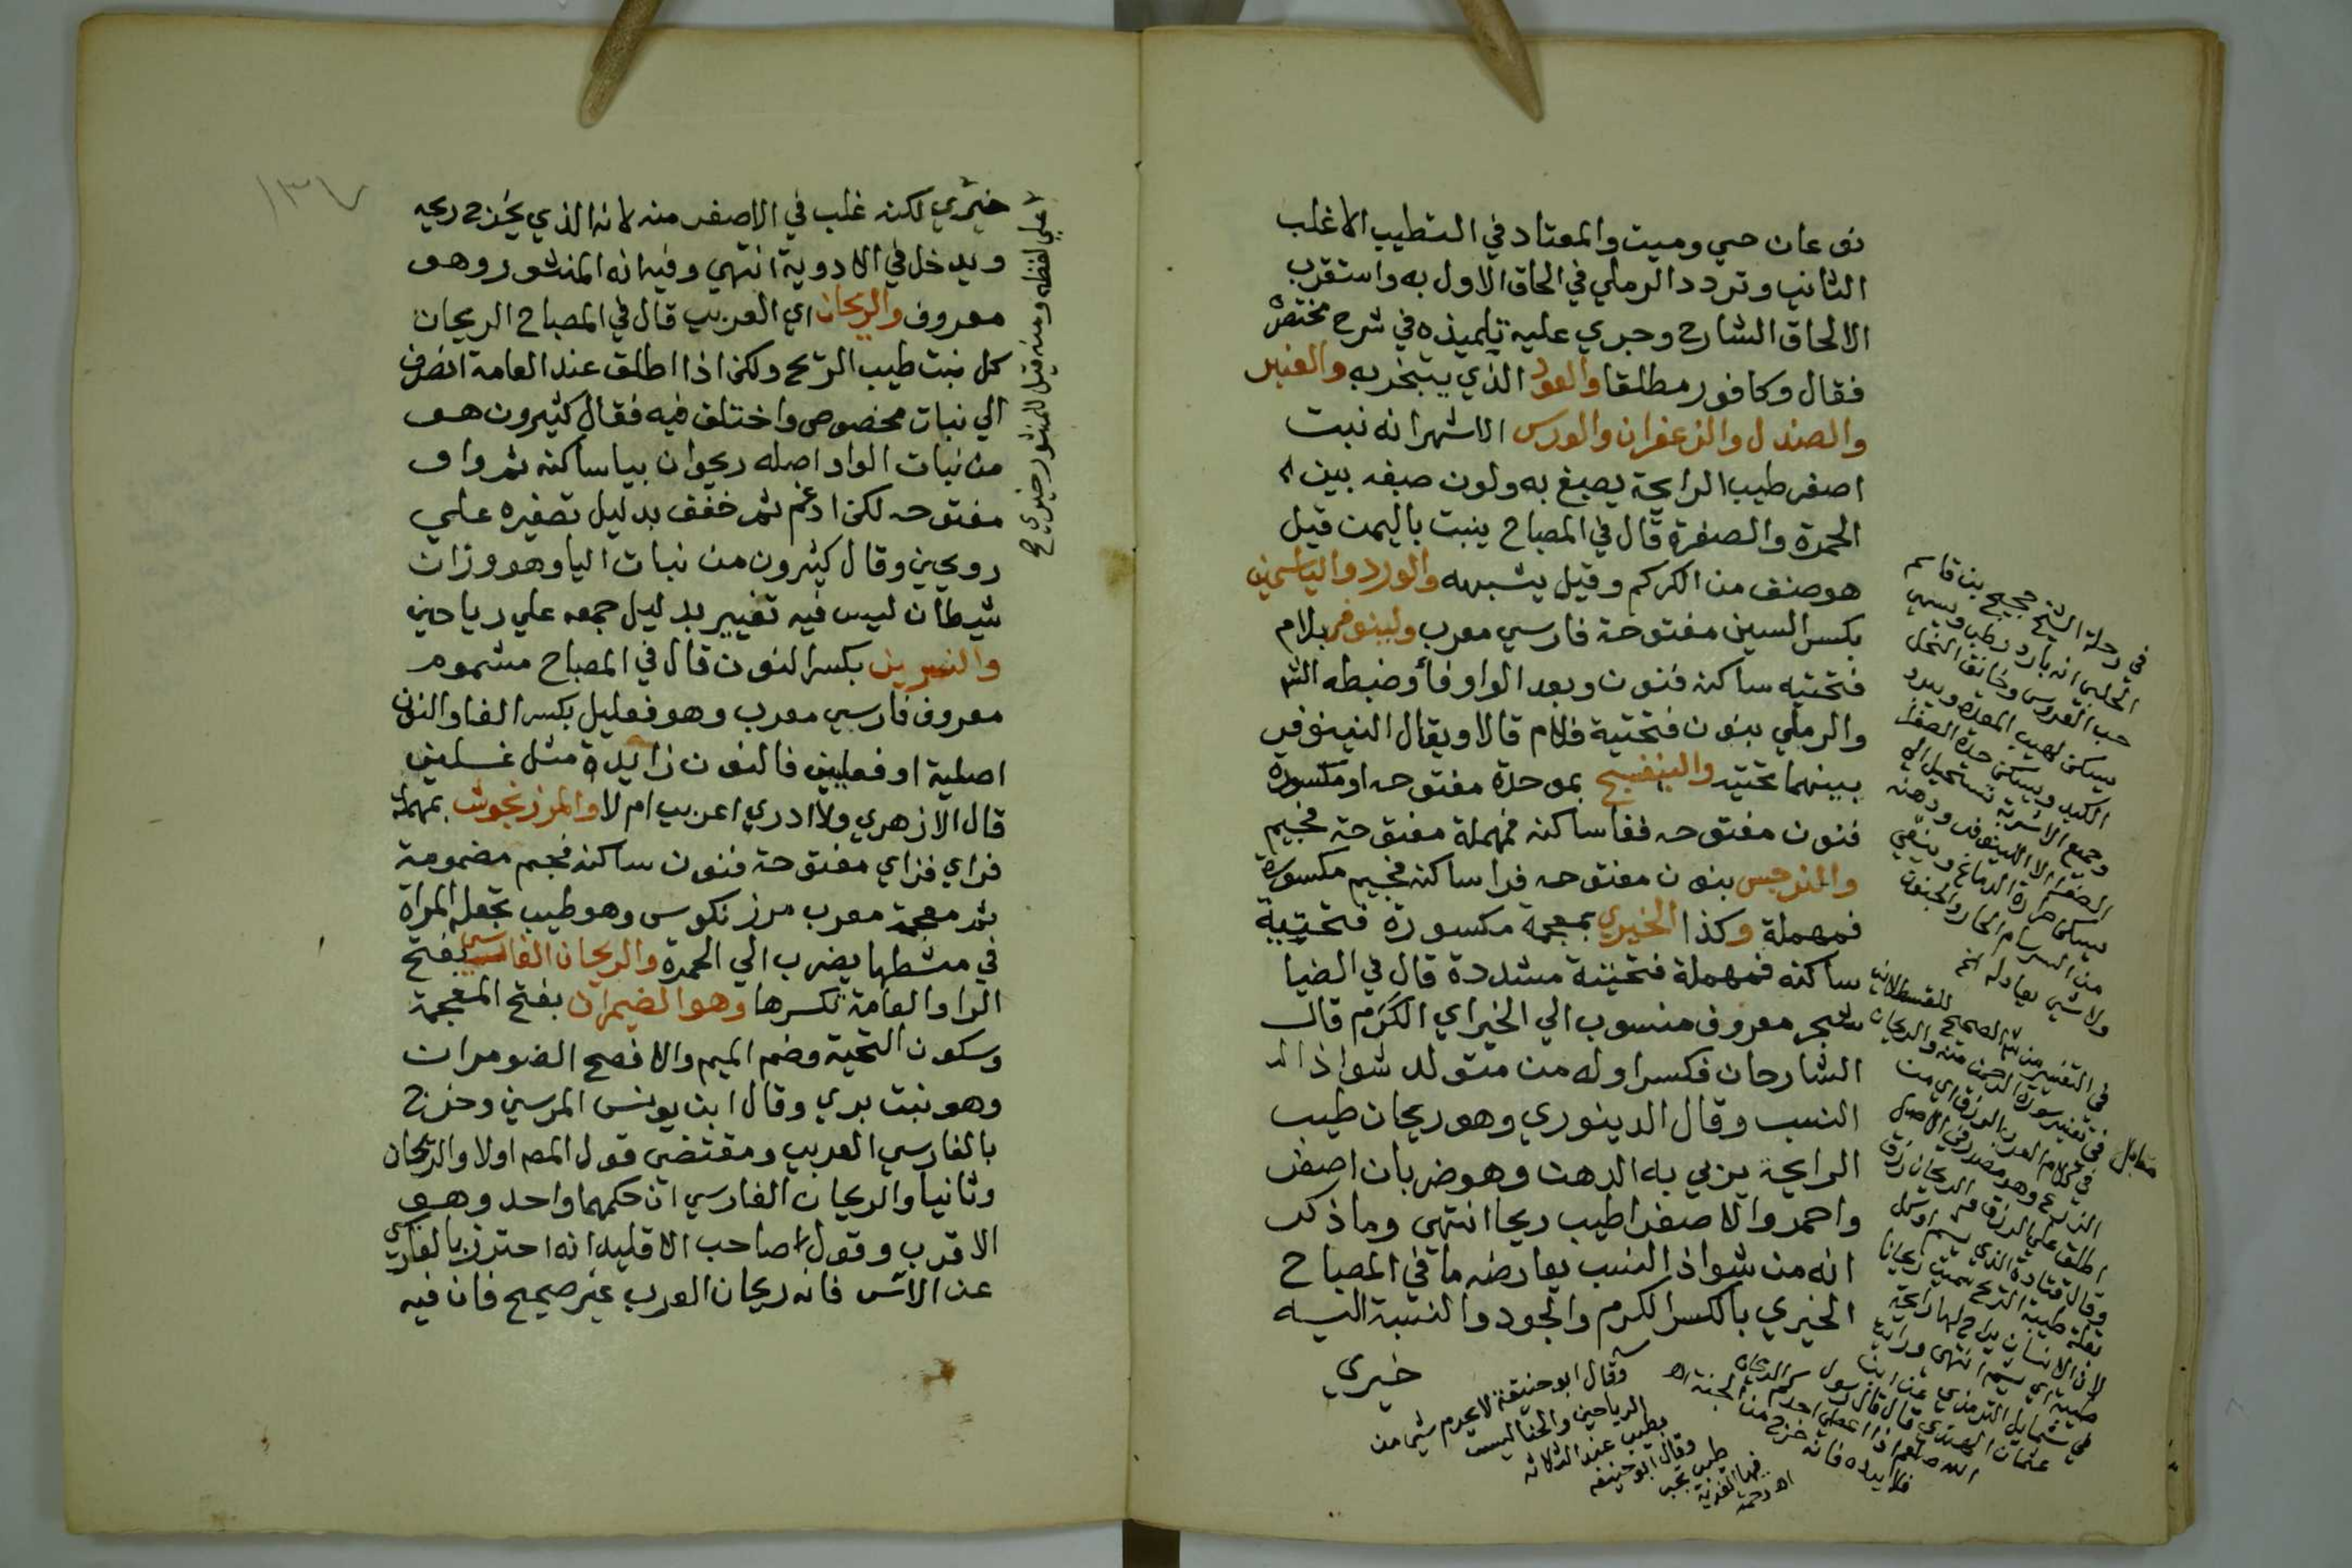 نوعان حي وميت والمعتاد في التطيب الاغلب
الثاني وتردد الرملي في الحاق الاول به واستقرب
الالحاق الشارح وجري عليه تلميذه في شرح مختصر
فقال وكافور مطلقا والعود الذي يتبخر به والعنبر
والصندل والزعفران والورس الاشهر انه نبت
اصفر طيب الرايحة يصبغ به ولون صبغه بين
الحمرة والصفرة قال في المصباح ينبت باليمن قيل
هو صنف من الكركم وقيل يشبهه والورد والياسمين
بكسر السين مفتوحة فارسي معرب ولينوفر بلام
فتحتيه ساكنه فنون وبعد الواو فأ وضبطه الش
والرملي بنون فتحتية فلام قالا ويقال النينوفر
بينهما تحتيه والبنفسج بموحدة مفتوحه او مكسورة
فنون مفتوحه ففا ساكنه فمهملة مفتوحة فجيم
والنرجس بنون مفتوحه فرا ساكنه فجيم مكسورة
فمهملة وكذا الخيري بمعجمة مكسورة فتحتية
ساكنه فمهملة فتحتية مشددة قال في الضيا
شجر معروف منسوب الي الخير اي الكرم قال
الشارحان فكسر اوله من متولد شواذ الد
النسب وقال الدينوري وهو ريحان طيب
الرايحة يربي به الدهن وهو ضربان اصفر
واحمر والاصفر اطيب ريحا انتهي وما ذكر
انه من شواذ النسب يعارضه ما في المصباح
الخيري بالكسر الكرم والجود والنسبة اليه
خيري
في رحلة الشيخ بن قاسم
الحلبي انه بارد رطب ويسمي
حب العروس وخانق النحل
يسكن لهيب المعدة ويبرد
الكبد ويسكن حدة الصفرا
وجميع الاشربة تستحيل الي
الصفرا الا اللينوفر ودهنه
يسكن حرارة الدماغ وينفي
من السرسام الحار والجنون
ولا شي يعادله
في التفسير من الصحيح للقسطلاني
في تفسير سورة الرحمن منه والريحان
في كلام العرب الرزق اي من
الزرع وهو مصدر في الاصل
اطلق علي الرزق الريحان رزق
وقال قتادة الذي يشم او كل
بقلة طيبة الريح سميت ريحانا
لان الانسان يراح لها رايحة
طيبة اي يشم انتهي ورايت
في شمايل الترمذي عن ابي
عثمان النهدي قال قال رسول
الله صلعم اذا اعطي احدكم الريحان
فلا يرده فانه خرج من الجنة اه
وقال ابو حنيفة لا يحرم شي من
الرياحين والحنا ليست
بطيب عند الثلاثه
وقال ابو حنيفه
طيب تجب
فيها الفدية
اه رحمة
خيري لكنه غلب في الاصفر منه لانه الذي يخرج ريحه
ويدخل في الادوية انتهي وفيه انه المنثور وهو
معروف والريحان اي العربي قال في المصباح الريحان
كل نبت طيب الريح ولكن اذا اطلق عند العامة انصرف
الي نبات مخصوص واختلف فيه فقال كثيرون هو
من نبات الواو اصله ريوحان بيا ساكنه ثم واو
مفتوحه لكن ادغم ثم خفف بدليل تصغيره علي
رويحين وقال كثيرون من نبات اليا وهو وزان
شيطان ليس فيه تغيير بدليل جمعه علي رياحين
والنسرين بكسر النون قال في المصباح مشموم
معروف فارسي معرب وهو فعليل بكسر الفا والنون
اصلية او فعلين فالنون زايدة مثل غسلين
قال الازهري ولا ادري اعربي ام لا والمرزنجوش بمهملة
فراي فزاي مفتوحة فنون ساكنه فجيم مضمومة
ثم معجمة معرب مرزنكوس وهو طيب تجعله المراة
في مشطها يضرب الي الحمرة والريحان الفارسي بفتح
الرا والعامة تكسرها وهو الضيمران بفتح المعجمة
وسكون التحتية وضم الميم والافصح الضومران
وهو نبت بري وقال ابن يونس المرسين وخرج
بالفارسي العربي ومقتضي قول المصم اولا والريحان
وثانيا والريحان الفارسي ان حكمهما واحد وهو
الاقرب وقول صاحب الاقليد انه احترز بالفارسي
عن الاس فانه ريحان العرب غير صحيح فان فيه
علي لفظه ومنه قيل للمنثور خيري صح
١٣٧